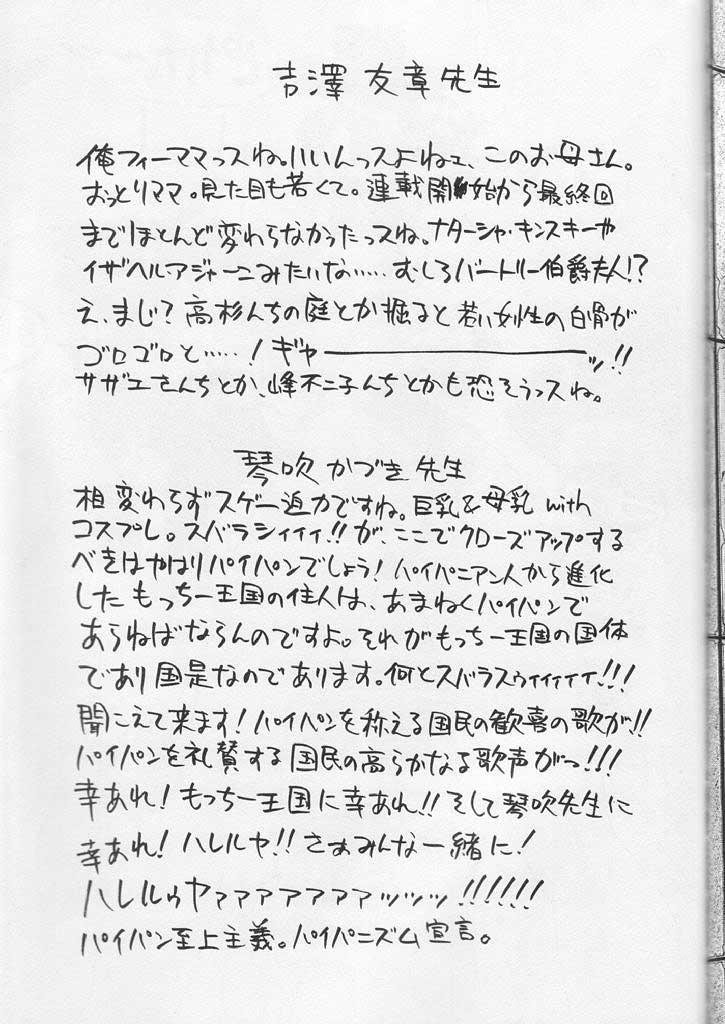 吉澤友章先生
俺フィーママっスね。いいんっスよねェ、このお母さん。
おっとりママ。見た目も若くて。連載開始から最終回
までほとんど変わらなかったっスね。ナターシャ・キンスキーや
イザベル・アジャーニみたいな……むしろバートリー伯爵夫人!?
え、まじ?高杉んちの庭とか掘ると若い女性の白骨が
ゴロゴロと……!ギャーーーーーッ!!
サザエさんちとか、峰不二子んちとかも恐そうっスね。
琴吹かづき先生
相変わらずスゲー迫力ですね。巨乳&母乳with
コスプレ。スバラシィィィ!!が、ここでクローズアップする
べきはやはりパイパンでしょう!パイパニアン人から進化
したもっちー王国の住人は、あまねくパイパンで
あらねばならんのですよ。それがもっちー王国の国体
であり国是なのであります。何とスバラスゥィィィィィ!!!
聞こえて来ます!パイパンを称える国民の歓喜の歌が!!
パイパンを礼賛する国民の高らかなる歌声がっ!!!
幸あれ!もっちー王国に幸あれ!!そして琴吹先生に
幸あれ!ハレルヤ!!さぁみんな一緒に!
ハレルゥヤァァァァァァァッッッ!!!!!!
パイパン至上主義。パイパニズム宣言。